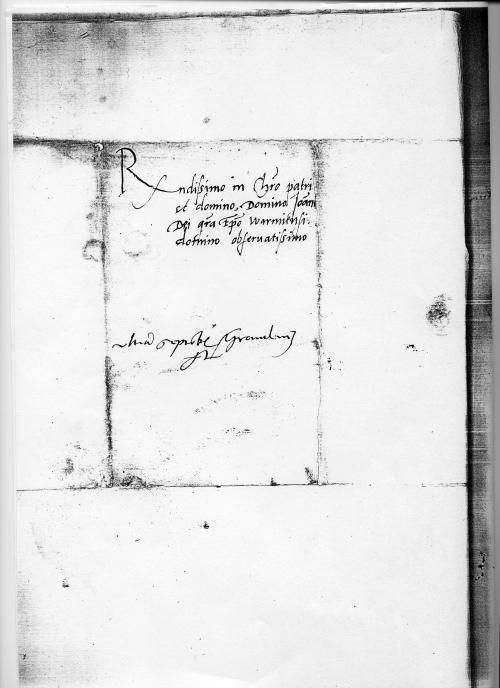 Rndissimo in Chro patri
et domino, Domino Joan
Dei gra Epo Warmiensi.
domino observatissimo